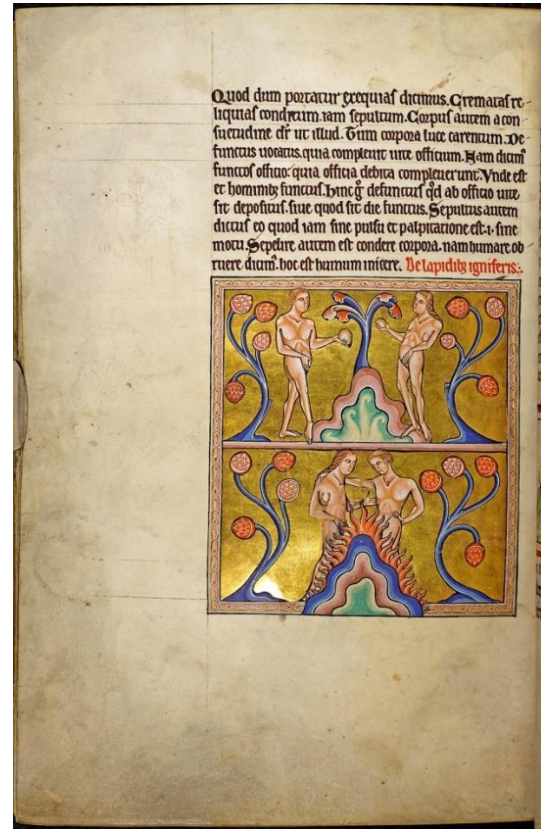 Quod dum portatur exequias dicimus. Crematas re
liquias conditum. iam sepultum. Corpus autem a con
suetudine dr̄ ut illud. Tum corpora luce carentum. De
functus uocatus. quia compleuit uite officium. Nam dicim᷒
functos officio: quia officia debita compleuerunt. Vnde est
et honorib; functus. hinc defunctus qd̄ ab officio uite
sit depositus. siue quod sit die functus. Sepultus autem
dictus eo quod iam sine pulsu et palpitatione est .i. sine
motu. Sepelire autem est condere corpora. nam humare ob
ruere dicim᷒. hoc est humum inicere. De lapidib; igniferis:.